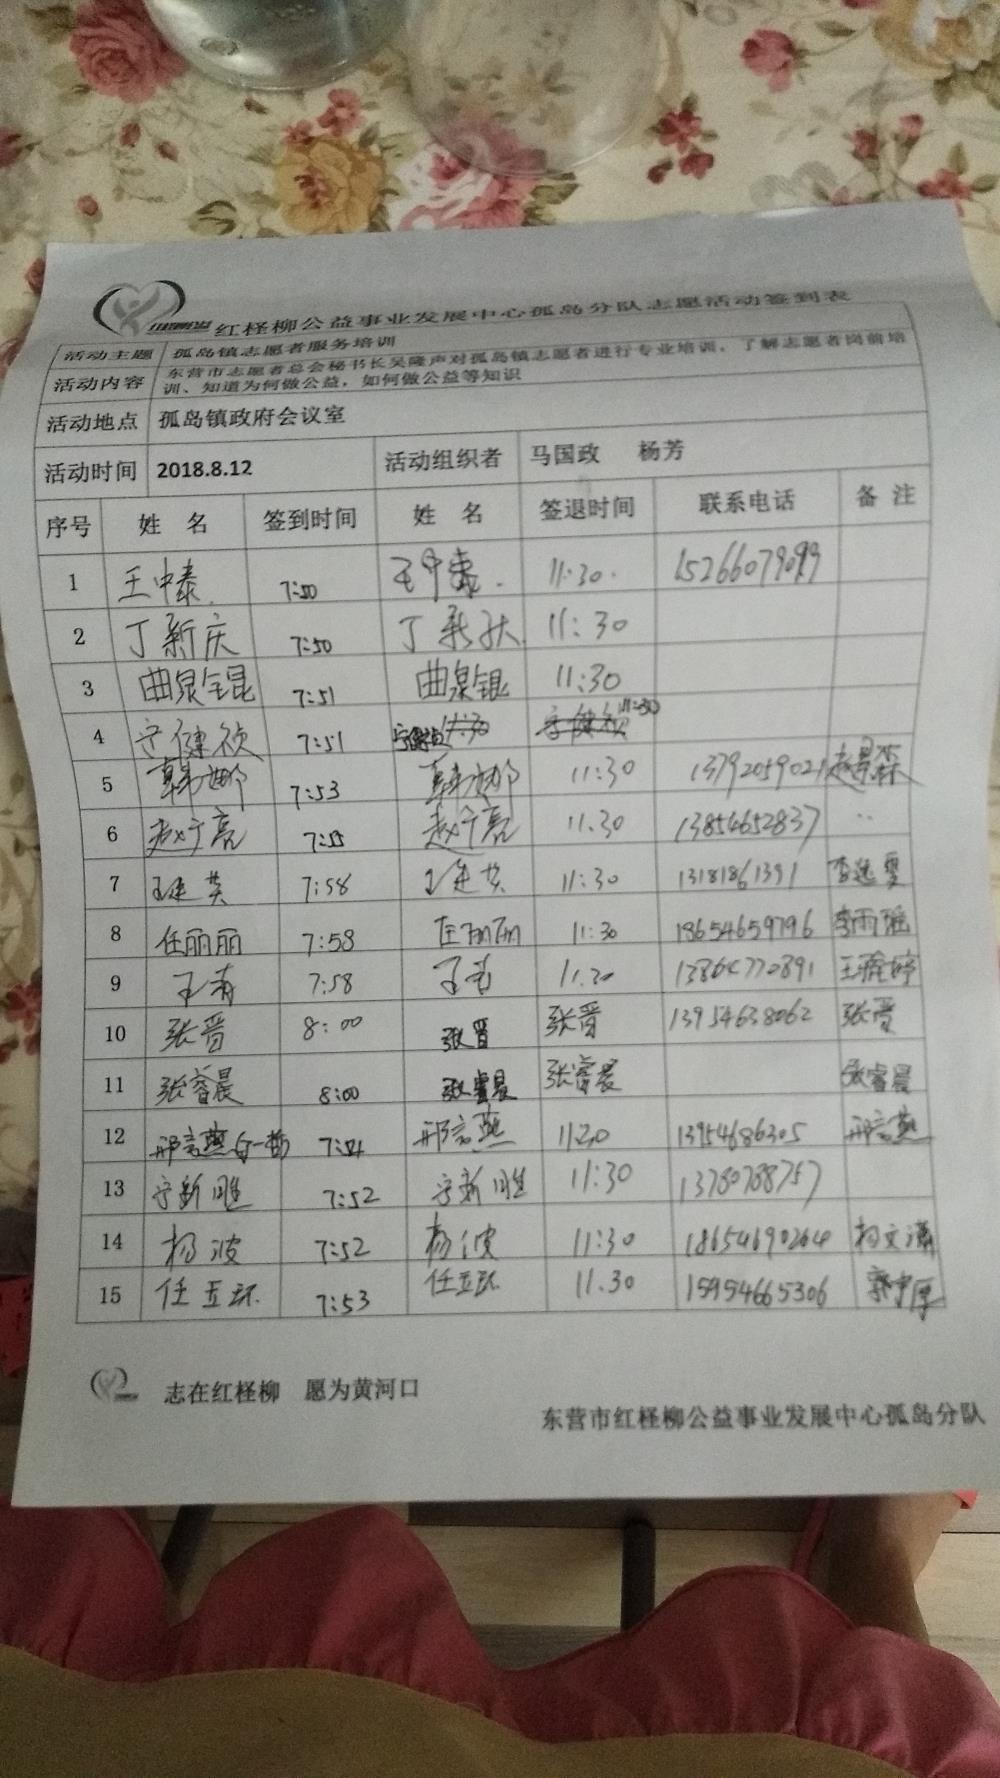 红柽柳公益事业发展中心孤岛分队志愿活动签到表
活动主题 孤岛镇志愿者服务培训
活动内容 东营市志愿者总会秘书长吴隆声对孤岛镇志愿者进行专业培训，了解志愿者岗前培
训、知道为何做公益，如何做公益等知识
活动地点 孤岛镇政府会议室
活动时间 2018.8.12 活动组织者 马国政 杨芳
序号 姓 名 签到时间 姓 名 签退时间 联系电话 备 注
1 王中泰. 7:50 王中泰. 11:30. 152660790
2 丁新庆 7:50 丁新庆 11:30
3 曲泉锟 7:51 曲泉锟 11:30
4 宁健祯 7:51 宁健祯 11:30
5 韩娜 7:53 韩娜 11:30 13792059021 赵景森
6 赵于亮 7:55 赵于亮 11.30 13854652837
7 王建英 7:58 王建英 11:30 13181861391
8 任丽丽 7:58 任丽丽 11:30 18654659796 李雨瑶
9 王青 7:58 王青 11:30 王婷
10 张晋 8:00 张晋 张晋 13954638062 张晋
11 张睿晨 8:00 张睿晨 张睿晨 张睿晨
12 邢言燕 邢言燕 13954686305 邢言燕
13 宁新胜 7:52 宁新胜 11:30 13780788757
14 杨波 7:52 杨波 11:30 18654690264 杨文
15 任玉环 7:53 任玉环 11.30 15954665306 郭中厚
志在红柽柳 愿为黄河口
东营市红柽柳公益事业发展中心孤岛分队